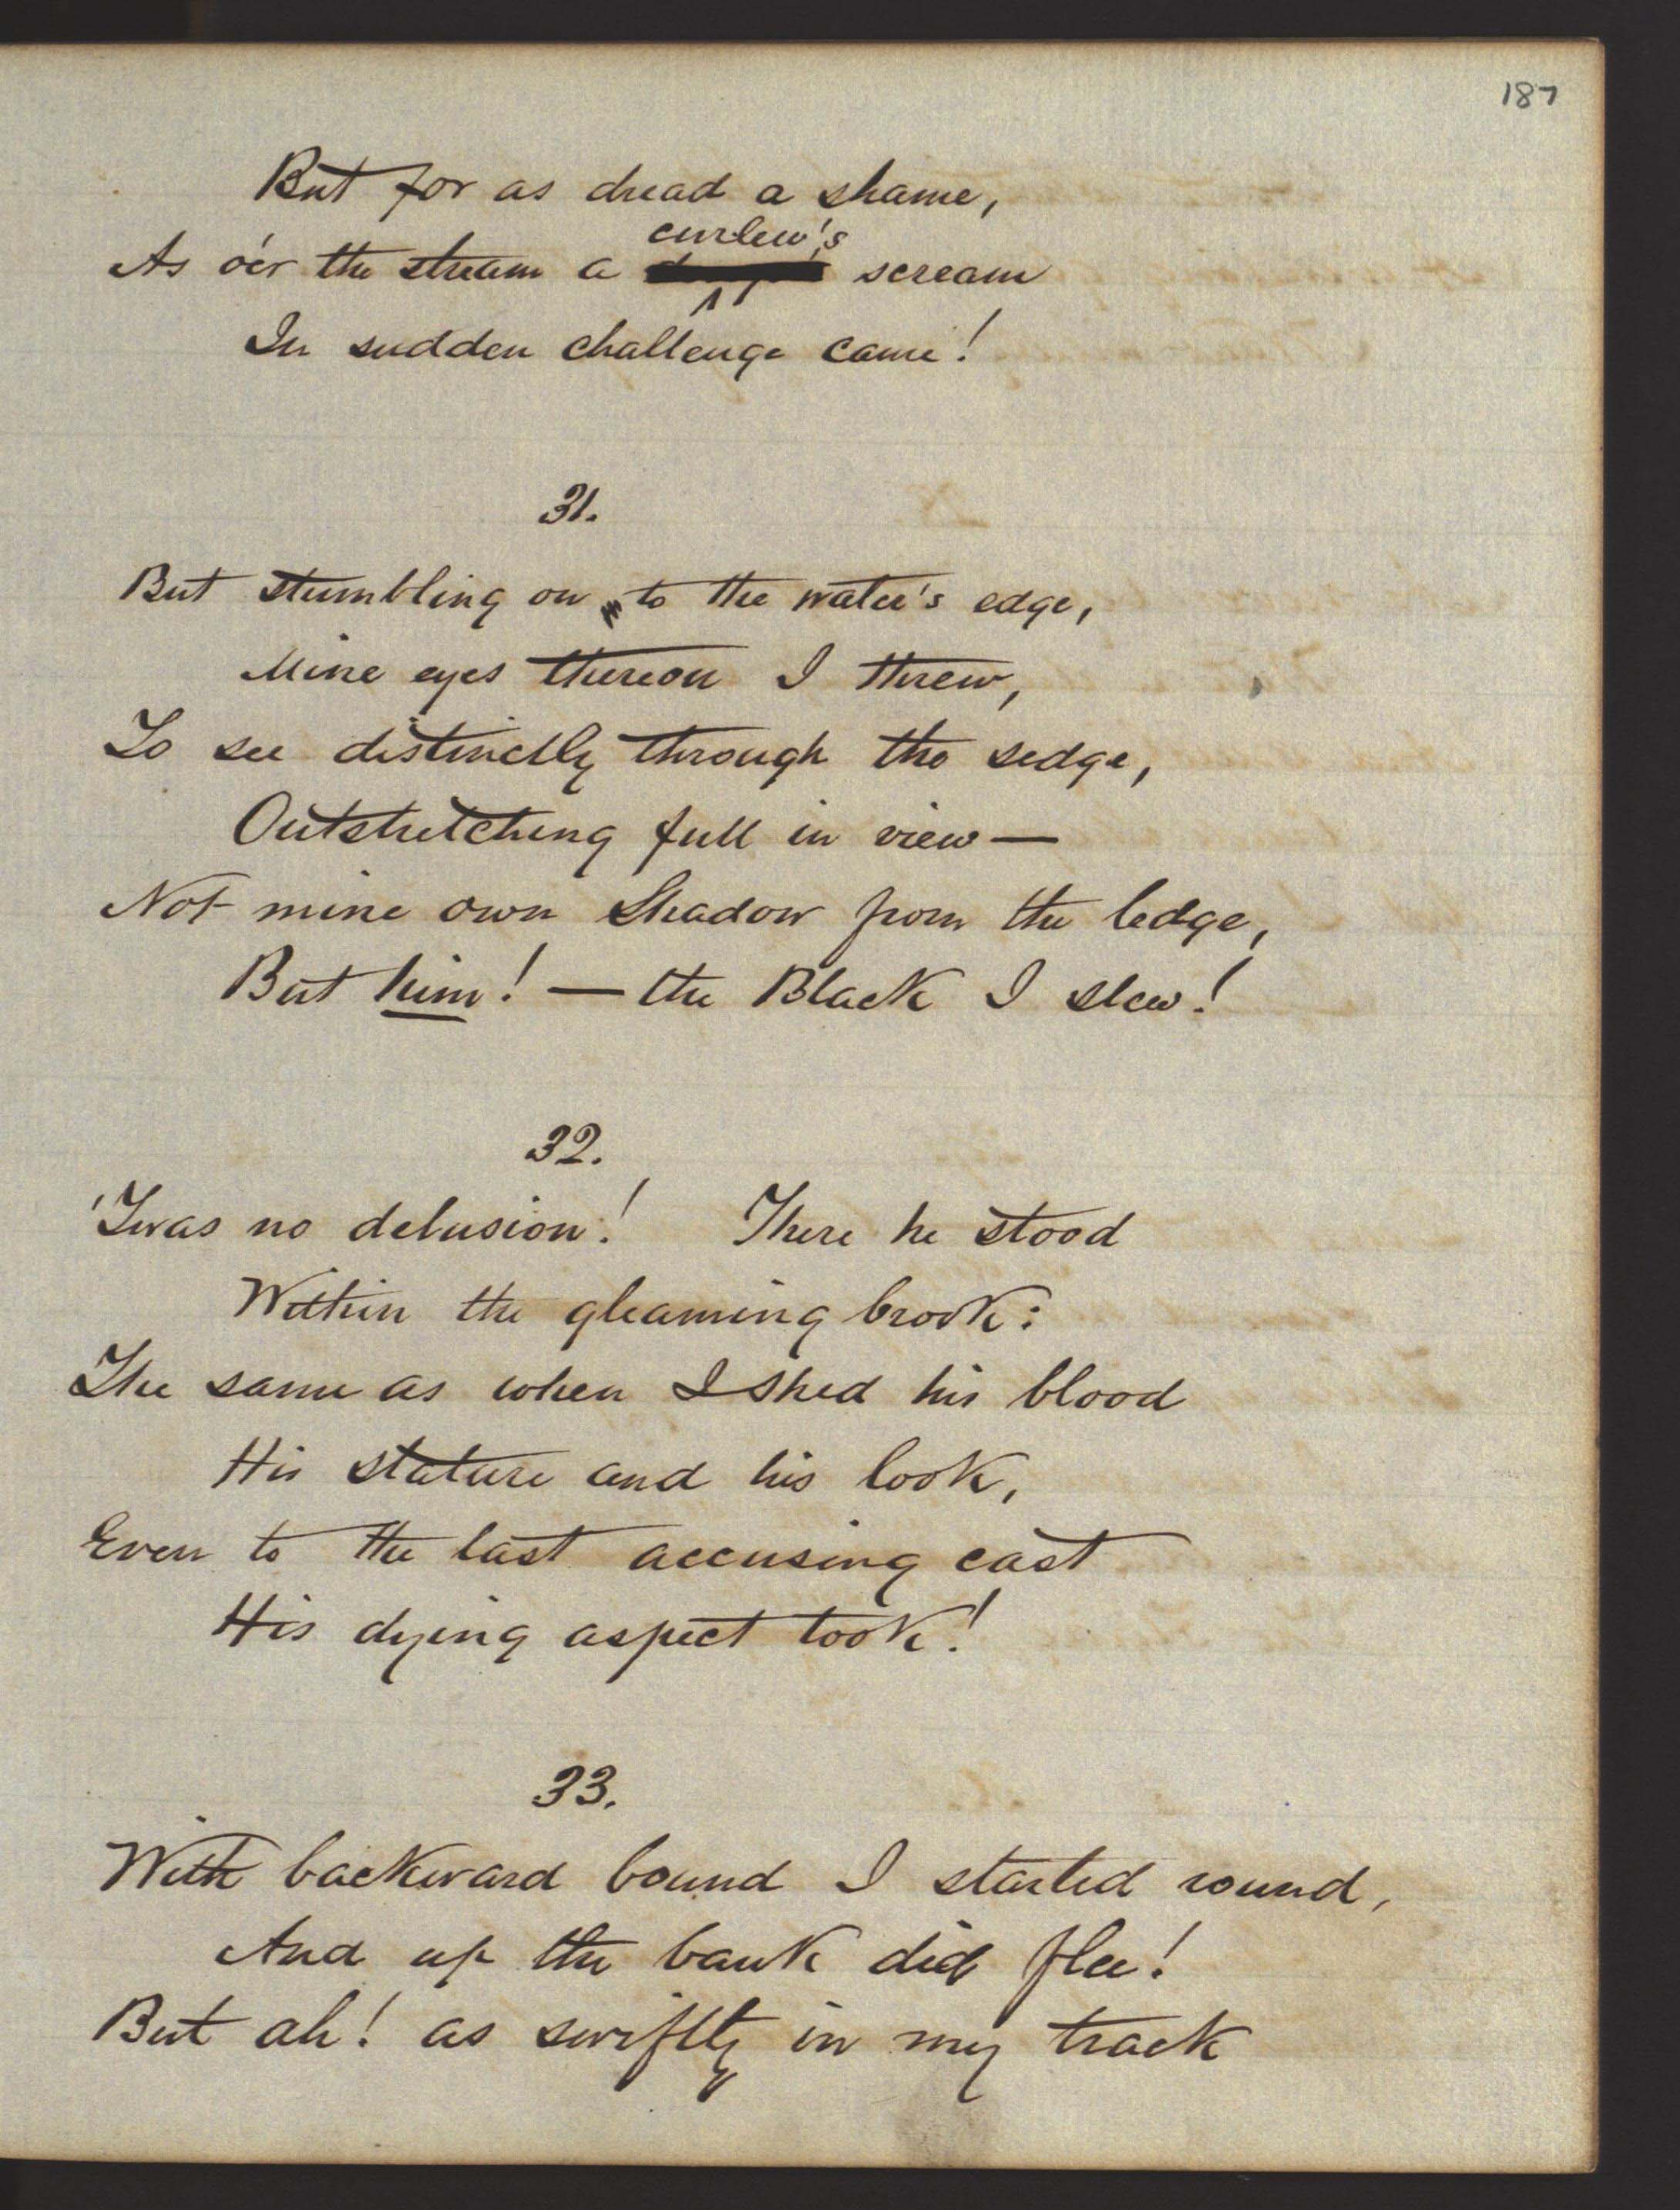 187
But for as dread a shame,
As o'er the stream a curlew's scream
In sudden challenge came!
31.
But stumbling on to the water's edge,
Mine eyes thereon I threw,
To see distinctly through the sedge,
Outstretching full in view —
Not mine own Shadow from the ledge,
But him! — the Black I slew!
32.
'Twas no delusion! There he stood
Within the gleaming brook:
The same as when I shed his blood
His stature and his look,
Even to the last accusing cast
His dying aspect took!
33.
With backward bound I started round,
And up the bank did flee!
But ah! as swiftly in my track